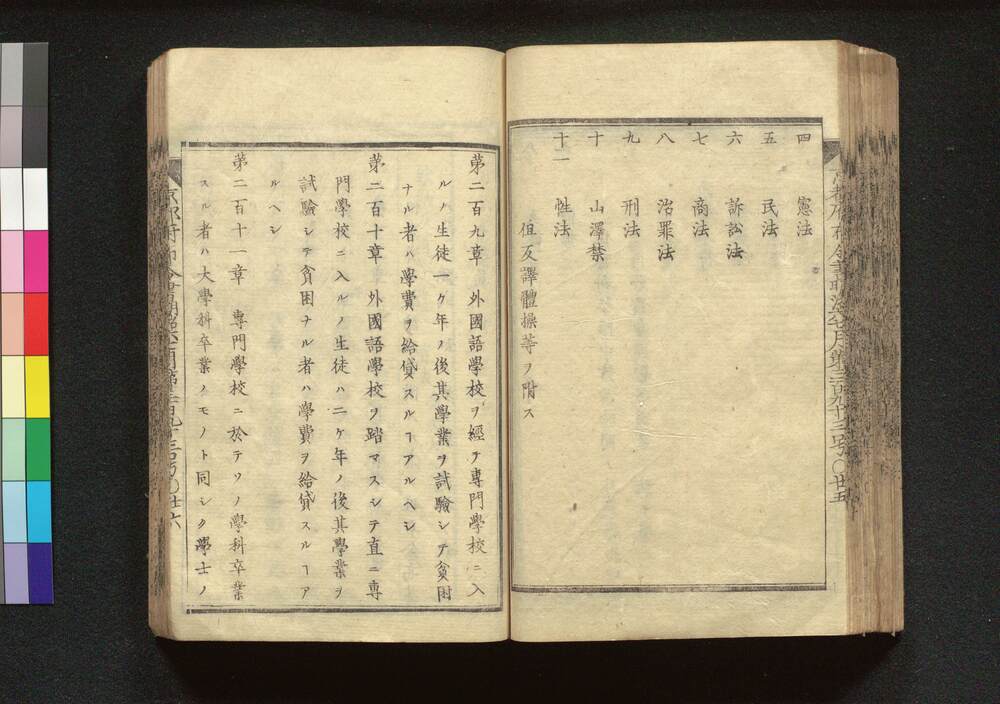 四 憲法
五 民法
六 訴訟法
七 商法
八 治罪法
九 刑法
十 山澤禁
十一 性法
但反譯體操等ヲ附ス
第二百九章 外國語學校ヲ經テ專門學校ニ入
ルノ生徒一ケ年ノ後其學業ヲ試驗シテ貧困
ナル者ハ學費ヲ給貸スルヿアルヘシ
第二百十章 外國語學校ヲ踏マスシテ直ニ專
門學校ニ入ルノ生徒ハ二ケ年ノ後其學業ヲ
試驗シテ貧困ナル者ハ學費ヲ給貸スルヿア
ルヘシ
第二百十一章 專門學校ニ於テソノ學科卒業
スル者ハ大學科卒業ノモノト同シク學士ノ